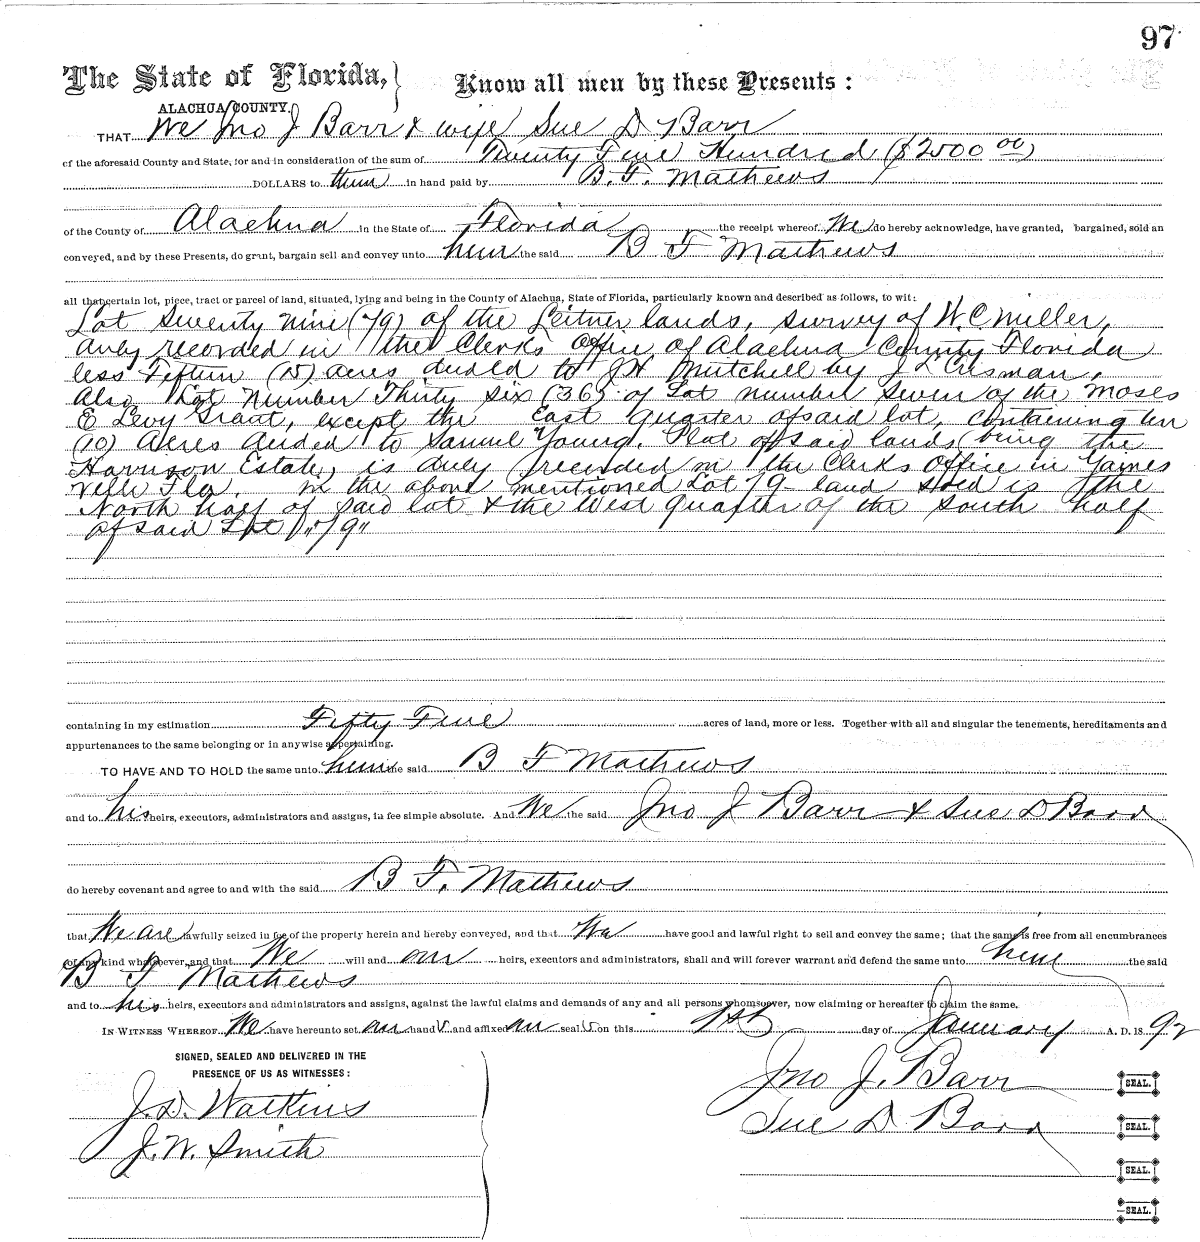 97
The State of Florida,
Know all men by these Presents:
ALACHUA COUNTY.
THAT We Jno J Barr & wife Sue D Barr
of the aforesaid County and State, for and in consideration of the sum of Twenty Five Hundred ($2500 00)
DOLLARS to them in hand paid by B. F. Mathews
of the County of Alachua in the State of Florida the receipt whereof We do hereby acknowledge, have granted, bargained, sold an
conveyed, and by these Presents, do grant, bargain sell and convey unto him the said B F Mathews
all that certain lot, piece, tract or parcel of land, situated, lying and being in the County of Alachua, State of Florida, particularly known and described as follows, to wit:
Lot Seventy nine (79) of the Leitner lands, survey of W. C Miller,
duly recorded in the Clerks Office of Alachua County Florida
less Fifteen (15) acres deeded to J H Mitchell by J L Crisman,
Also Lot Number Thirty Six (36) of Lot number Seven of the Moses
E Levy Grant, except the East quarter of said lot, containing ten
(10) Acres deeded to Samuel Young. Plat of said lands (being the
Harrison Estate) is duly recorded in the Clerks Office in Gaines
ville Fla. in the above mentioned Lot 79 land sold is the
North half of said lot & the West quarter of the South half
of said Lot "79"
containing in my estimation Fifty Five acres of land, more or less. Together with all and singular the tenements, hereditaments and
appurtenances to the same belonging or in anywise appertaining.
TO HAVE AND TO HOLD the same unto him the said B F Mathews
and to his heirs, executors, administrators and assigns, in fee simple absolute. And We the said Jno J Barr & Sue D Barr
do hereby covenant and agree to and with the said B F. Mathews
that We are lawfully seized in fee of the property herein and hereby conveyed, and that We have good and lawful right to sell and convey the same; that the same is free from all encumbrances
of any kind whatsoever, and that We will and our heirs, executors and administrators, shall and will forever warrant and defend the same unto him the said
B F Mathews
and to his heirs, executors and administrators and assigns, against the lawful claims and demands of any and all persons whomsoever, now claiming or hereafter to claim the same.
IN WITNESS WHEREOF We have hereunto set our hands and affixed our seals on this 1st day of January A. D. 1892
SIGNED, SEALED AND DELIVERED IN THE
PRESENCE OF US AS WITNESSES:
Jno J. Barr SEAL.
J. D. Watkins
Sue D Barr SEAL.
J. W. Smith
SEAL.
SEAL.